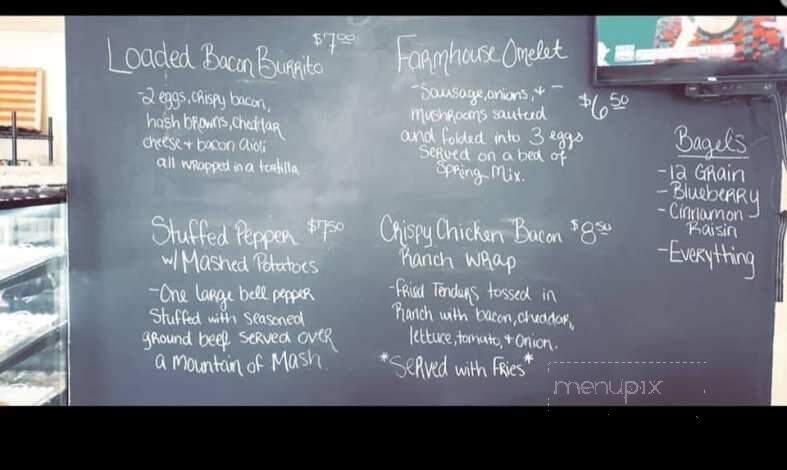 Loaded Bacon Burrito $7.00
-2 eggs, crispy bacon,
hash browns, cheddar
cheese + bacon aioli
all wrapped in a tortilla
Farmhouse Omelet
-Sausage, onions, + - $6.50
mushrooms sauteed
and folded into 3 eggs
served on a bed of
Spring Mix.
Stuffed Pepper $7.50
w/ Mashed Potatoes
-One large bell pepper
stuffed with seasoned
ground beef served over
a mountain of Mash.
Crispy Chicken Bacon $8.50
Ranch Wrap
-Fried Tenders tossed in
Ranch with bacon, cheddar,
lettuce, tomato, + onion.
*Served with Fries*
Bagels
-12 Grain
-Blueberry
-Cinnamon
Raisin
-Everything
menupix